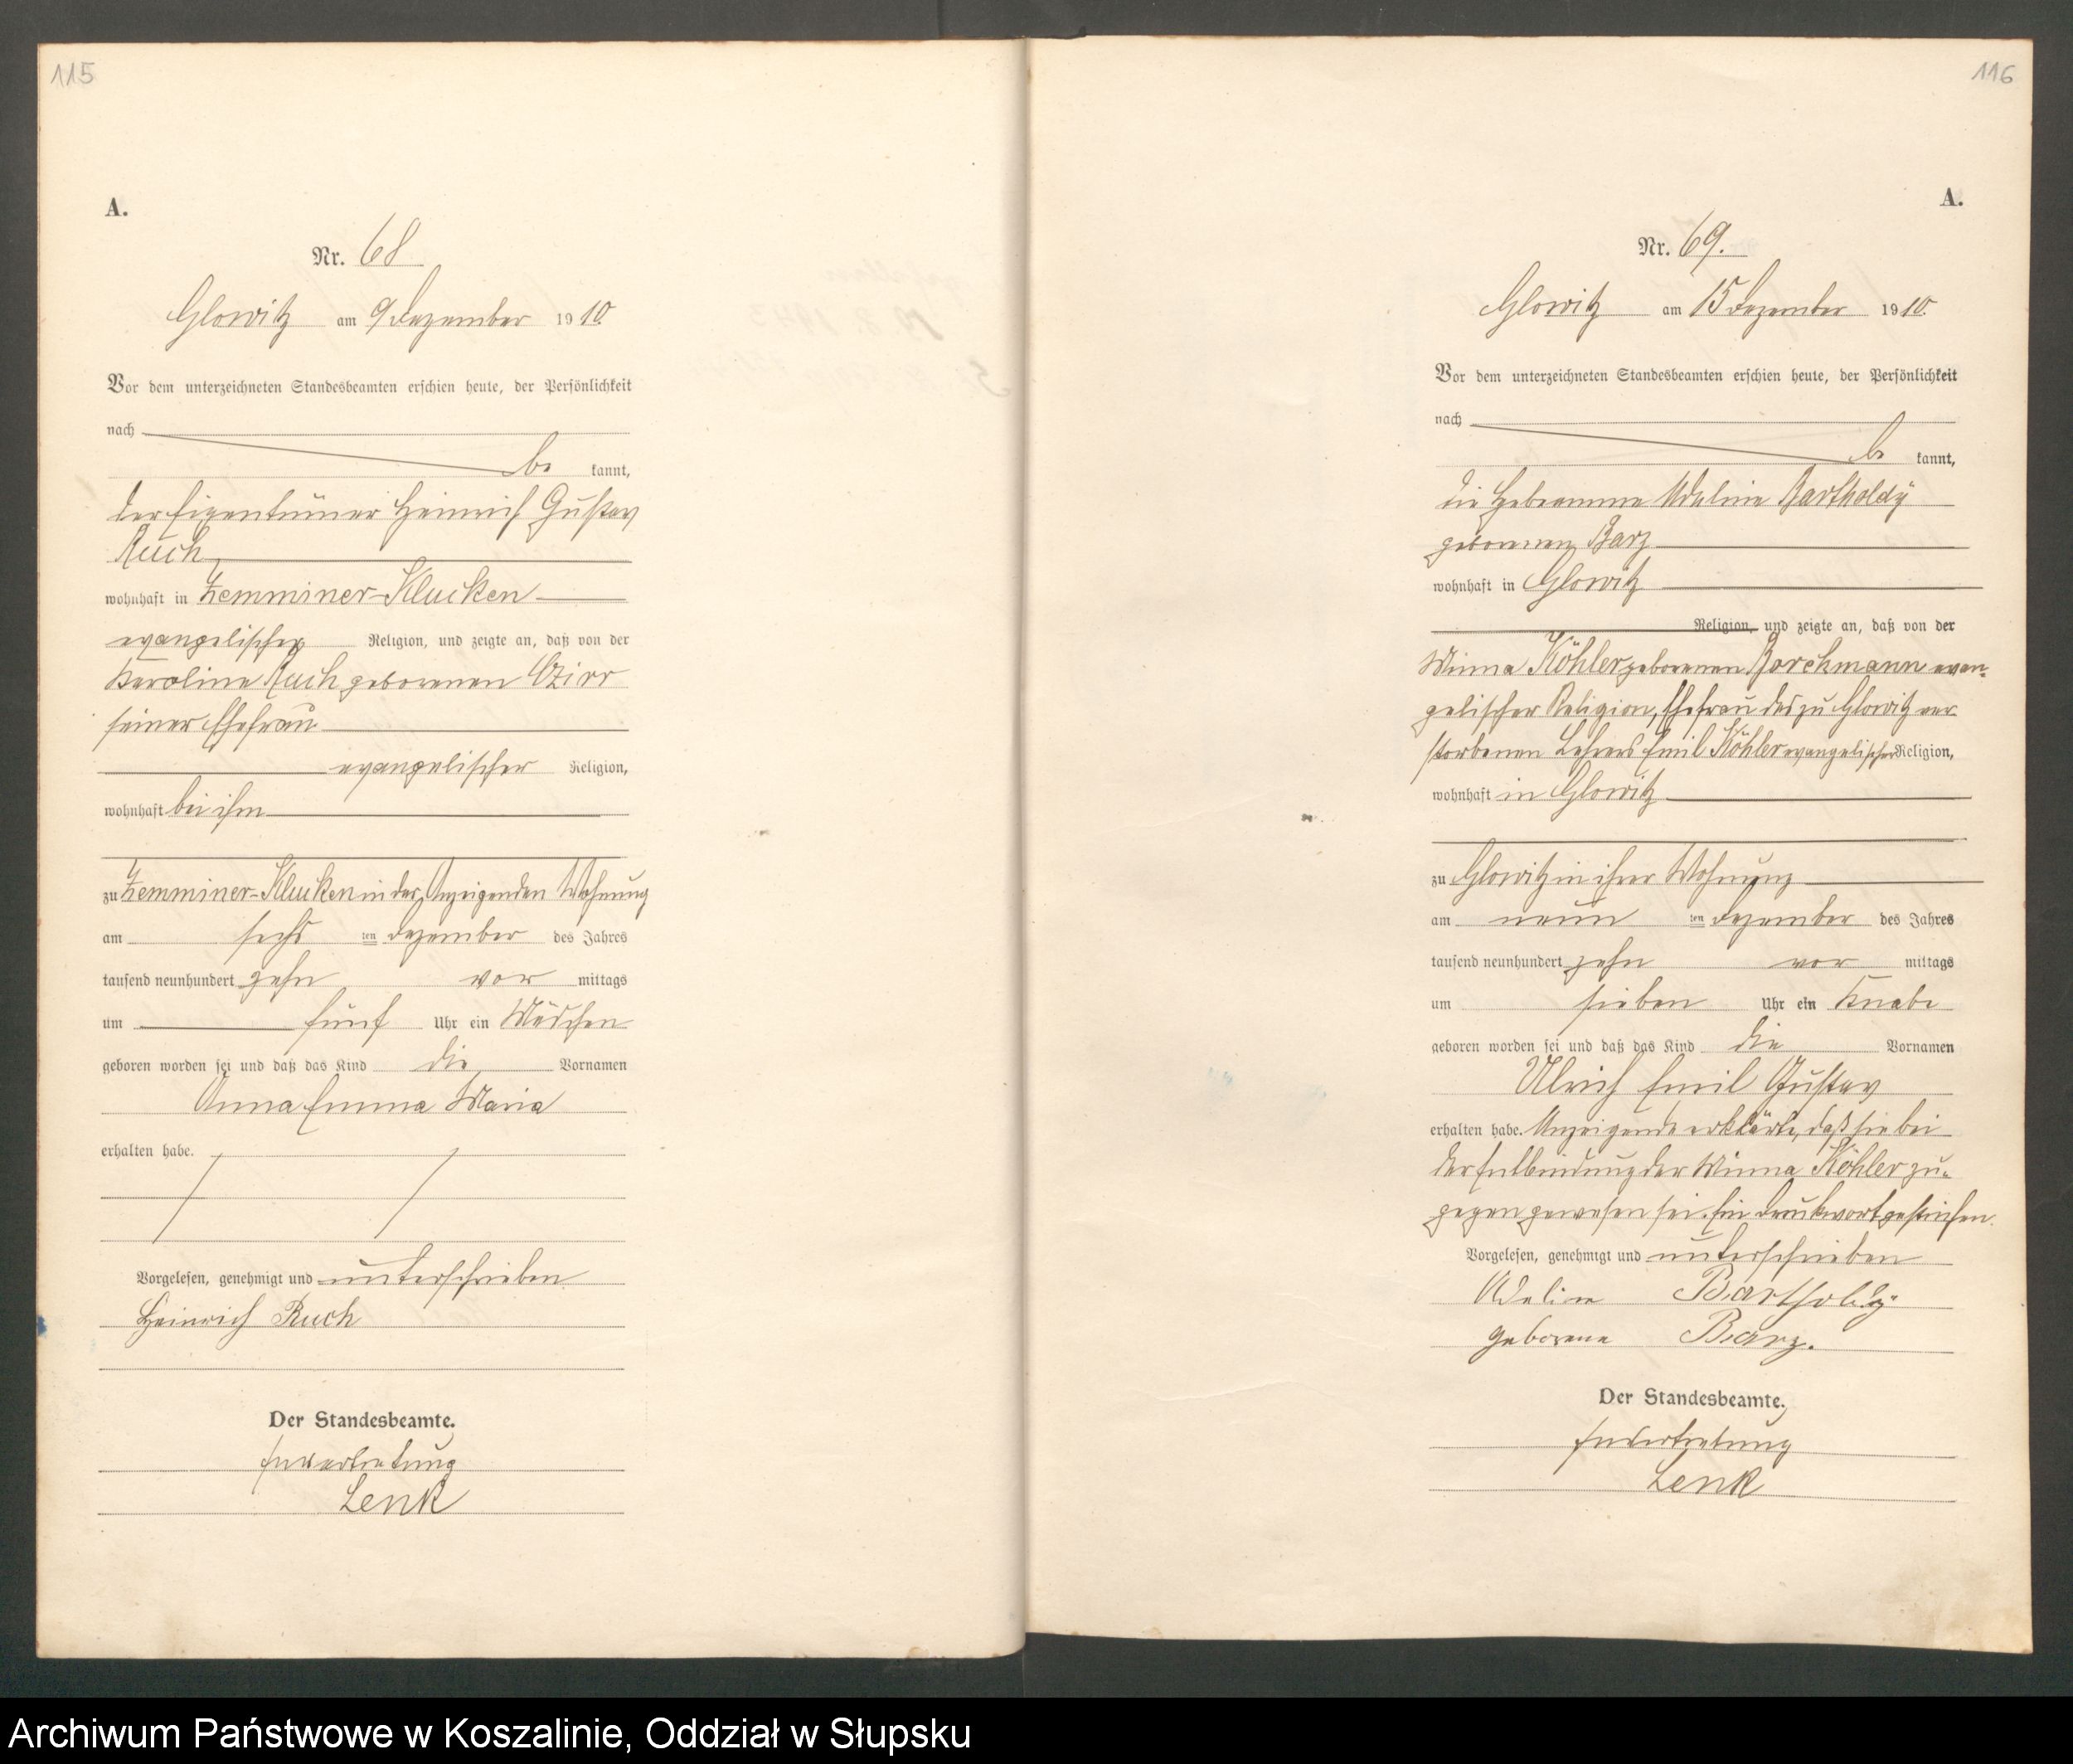 115
A.
Nr. 68
Glowitz am 9 Dezember 1910.
Vor dem unterzeichneten Standesbeamten erschien heute, der Persönlichkeit
nach
be kannt,
der Eigentümer Heinrich Gustav
Ruch
wohnhaft in Zemminer-Klucken
evangelischer Religion, und zeigte an, daß von der
Karoline Ruch geborenen Czirr
seiner Ehefrau
evangelischer Religion,
wohnhaft bei ihm
zu Zemminer-Klucken in der Anzeigenden Wohnung
am sechs ten Dezember des Jahres
tausend neunhundert zehn vor mittags
um fünf Uhr ein Mädchen
geboren worden sei und daß das Kind die Vornamen
Anna Emma Maria
erhalten habe.
Vorgelesen, genehmigt und unterschrieben
Heinrich Ruch
Der Standesbeamte.
In Vertretung
Lenk
116
A.
Nr. 69.
Glowitz am 15 Dezember 1910.
Vor dem unterzeichneten Standesbeamten erschien heute, der Persönlichkeit
nach
be kannt,
die Hebeamme Adeline Bartholdÿ
geborenen Barz
wohnhaft in Glowitz
Religion, und zeigte an, daß von der
Minna Köhler geborenen Borchmann evan-
gelischer Religion, Ehefrau des zu Glowitz ver
storbenen Lehrers Emil Köhler evangelischer Religion,
wohnhaft in Glowitz
zu Glowitz in ihrer Wohnung
am neun ten Dezember des Jahres
tausend neunhundert zehn vor mittags
um sieben Uhr ein Knabe
geboren worden sei und daß das Kind die Vornamen
Ulrich Emil Gustav
erhalten habe. Anzeigende erklärte, daß sie bei
der Entbindung der Minna Köhler zu-
gegen gewesen sei. Ein Druckwort gestrichen.
Vorgelesen, genehmigt und unterschrieben
Adeline Bartholdÿ
geborene Barz.
Der Standesbeamte.
In Vertretung
Lenk
Archiwum Państwowe w Koszalinie, Oddział w Słupsku